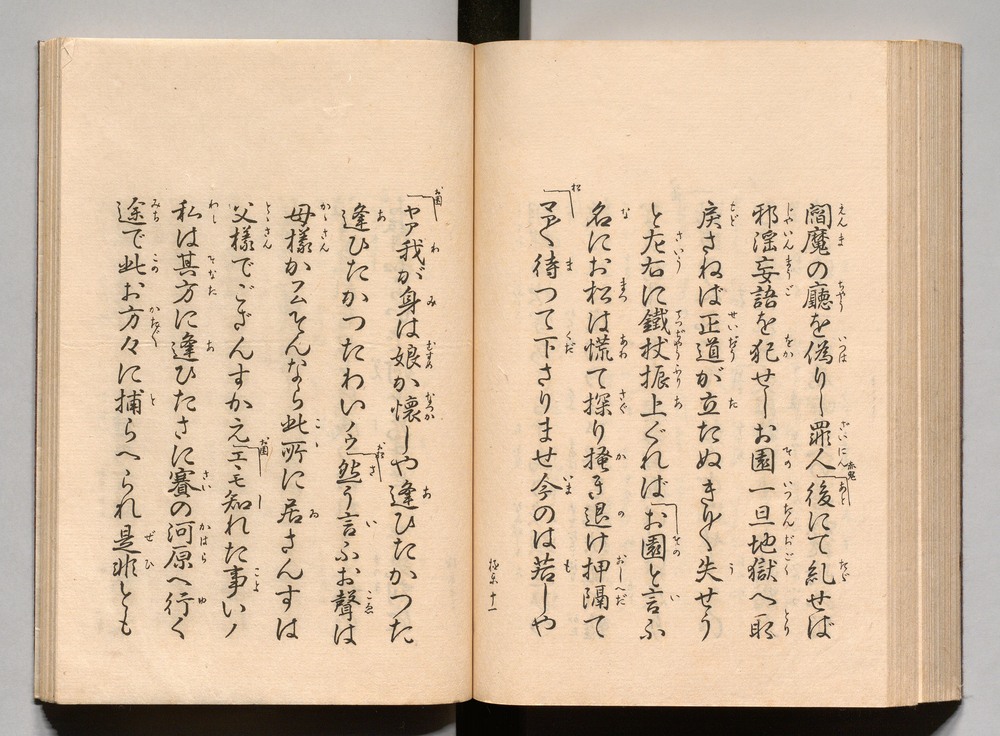 閻魔の廳を偽りし罪人「後にて糺せば
邪淫妄語を犯せしお園一旦地獄へ取
戻さねば正道が立たぬきり〱失せう
と左右に鐵杖振上ぐれば「お園と言ふ
名にお松は慌て探り掻き退け押隔て
「マア〱待つて下さりませ今のは若しや
極楽 十一
「ヤア我が身は娘か懐しや逢ひたかつた
逢ひたかつたわいノウ「然う言ふお聲は
母樣かエヽそんなら此所に居さんすは
父樣でござんすかえ「エヽモ知れた事いノ
私は其方に逢ひたさに賽の河原へ行く
途で此お方々に捕らへられ是非とも